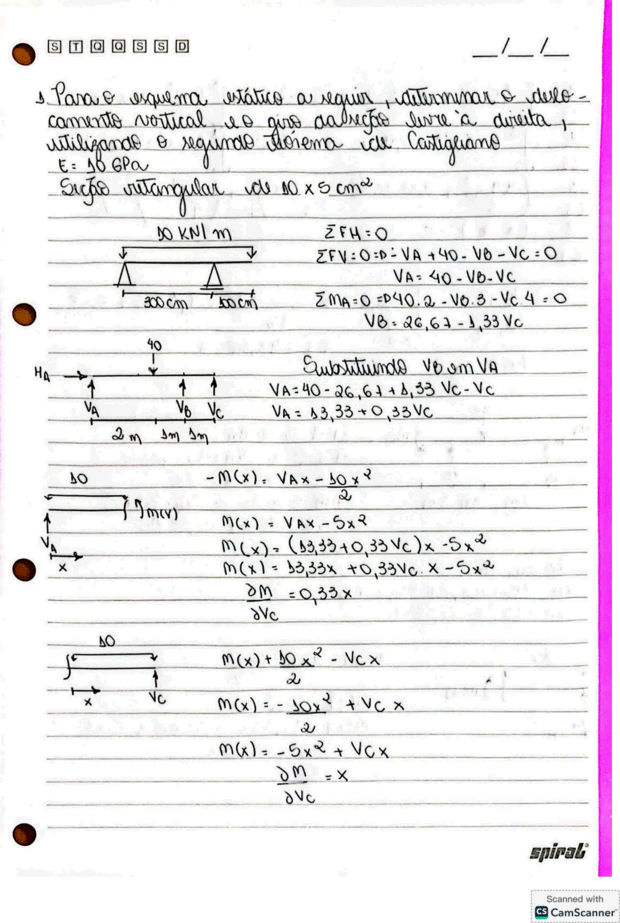 S T Q Q S S D
__/__/__
1 Para o esquema estático a seguir, determinar o deslo-
camento vertical e o giro da seção livre à direita,
utilizando o segundo teorema de Castigliano
E = 10 GPa
Seção retangular de 10 x 5 cm²
10 KN/m
300 cm 100 cm
ΣFH = 0
ΣFV = 0 =D - VA + 40 - VB - VC = 0
VA = 40 - VB - VC
ΣMA = 0 =D 40.2 - VB.3 - VC.4 = 0
VB = 26,67 - 1,33 VC
40
HA
VA VB VC
2 m 1m 1m
Substituindo VB em VA
VA = 40 - 26,67 + 1,33 VC - VC
VA = 13,33 + 0,33 VC
10
M(x)
VA
x
- M(x) = VAx - 10x²/2
M(x) = VAx - 5x²
M(x) = (13,33 + 0,33 VC)x - 5x²
M(x) = 13,33x + 0,33VC . x - 5x²
∂M/∂VC = 0,33x
10
x
VC
M(x) + 10x²/2 - VCx
M(x) = - 10x²/2 + VC x
M(x) = - 5x² + VCx
∂M/∂VC = x
spiral
Scanned with
CS CamScanner